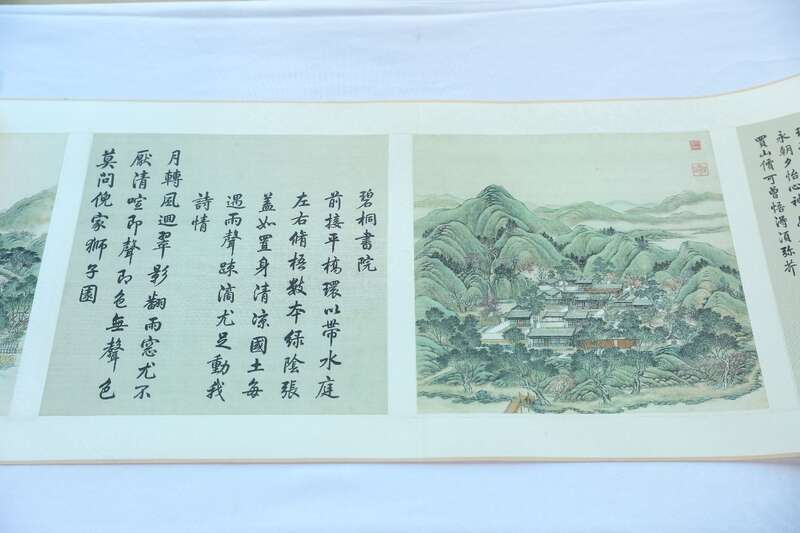 永朝夕怡心神
買山價可曾悟得須弥芥
碧桐書院
前接平橋環以帶水庭
左右脩梧數本綠陰張
蓋如置身清涼國土每
遇雨聲疎滴尤足動我
詩情
月轉風迴翠影翻雨窓尤不
厭清喧即聲即色無聲色
莫問倪家獅子園